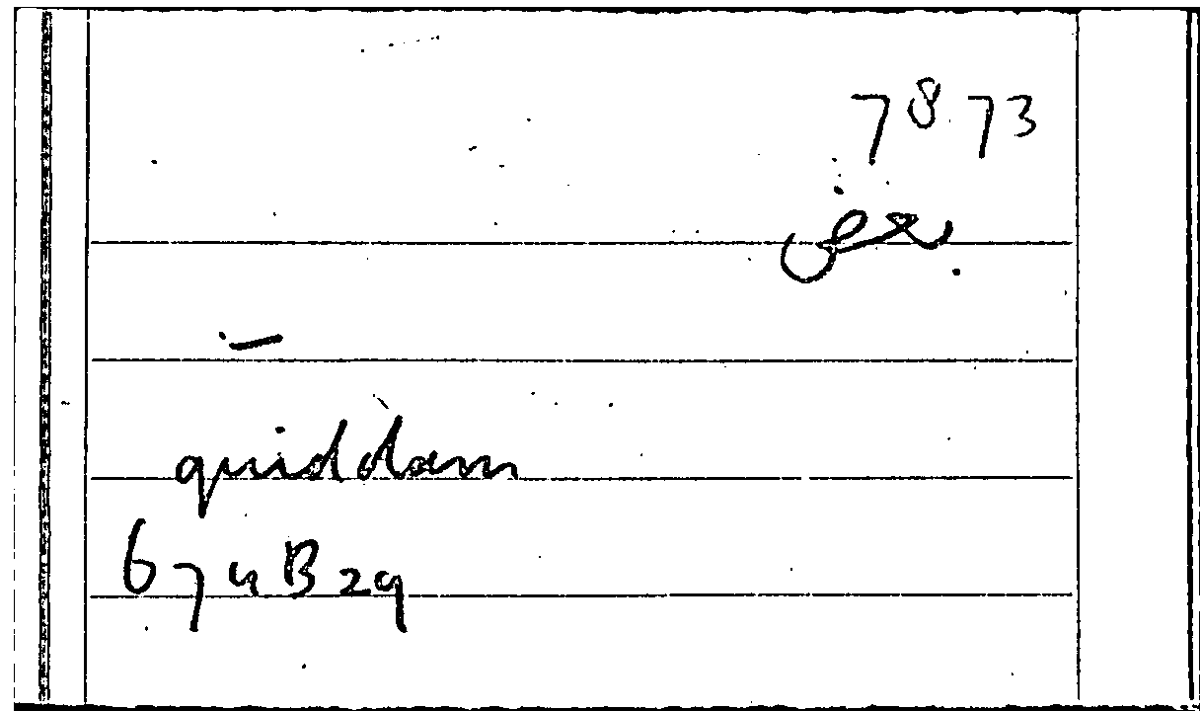 7873
quiddam
674B29